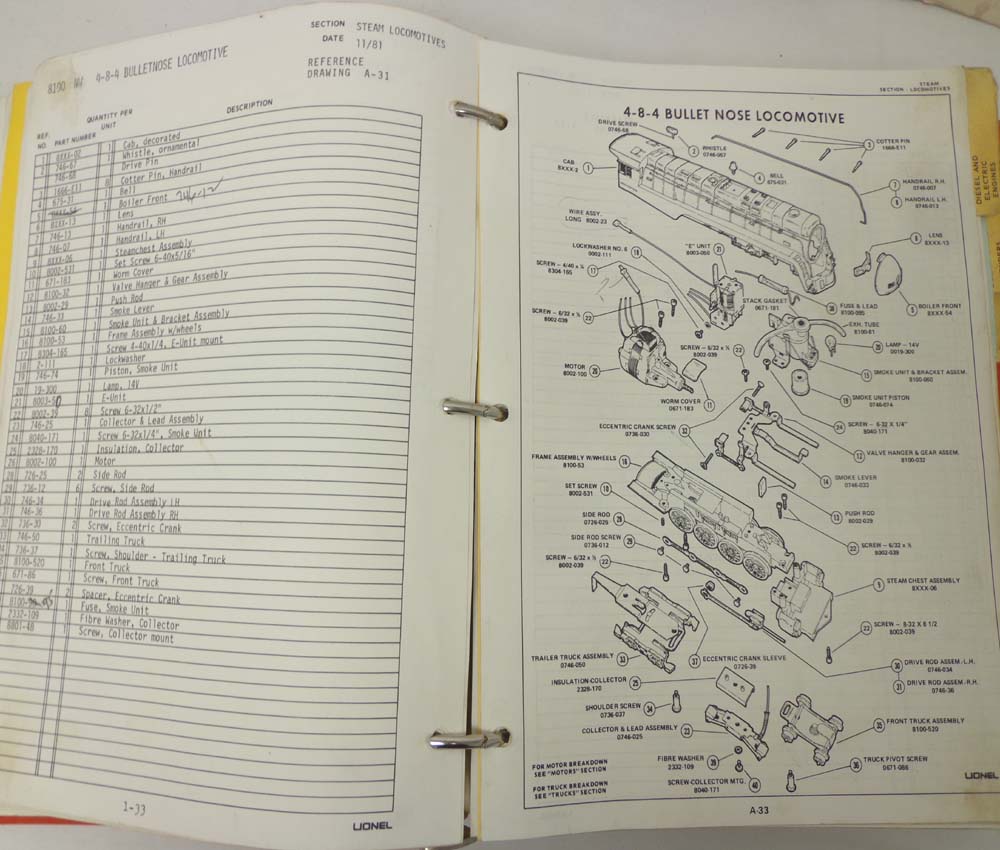 SECTION STEAM LOCOMOTIVES
DATE 11/81
REFERENCE
DRAWING A-31
8190 4-8-4 BULLETNOSE LOCOMOTIVE
REF. NO. PART NUMBER QUANTITY PER UNIT DESCRIPTION
8XXX-02 1 Cab, decorated
746-67 1 Whistle, ornamental
746-68 Drive Pin
1666-E11 8 Cotter Pin, Handrail
675-31 1 Bell
Boiler Front
8XXX-13 1 Lens
746-12 1 Handrail, RH
746-07 1 Handrail, LH
8XXX-06 1 Steamchest Assembly
8002-531 Set Screw 6-40x5/16"
671-183 1 Worm Cover
8100-32 1 Valve Hanger & Gear Assembly
8002-29 Push Rod
746-33 1 Smoke Lever
8100-60 1 Smoke Unit & Bracket Assembly
8100-53 1 Frame Assembly w/wheels
8304-165 Screw 4-40x1/4, E-Unit mount
2-111 Lockwasher
746-74 1 Piston, Smoke Unit
19-300 1 Lamp, 14V
8003-50 1 E-Unit
8002-39 8 Screw 6-32x1/2"
746-25 1 Collector & Lead Assembly
8040-171 Screw 6-32x1/4", Smoke Unit
2328-170 1 Insulation, Collector
8002-100 1 Motor
726-25 2 Side Rod
736-12 6 Screw, Side Rod
746-34 1 Drive Rod Assembly LH
746-36 1 Drive Rod Assembly RH
736-30 2 Screw, Eccentric Crank
746-50 1 Trailing Truck
736-37 1 Screw, Shoulder - Trailing Truck
8100-520 1 Front Truck
671-86 1 Screw, Front Truck
726-39 2 Spacer, Eccentric Crank
8100- 1 Fuse, Smoke Unit
2332-109 1 Fibre Washer, Collector
8801-48 1 Screw, Collector mount
1-33
LIONEL
STEAM
SECTION - LOCOMOTIVES
4-8-4 BULLET NOSE LOCOMOTIVE
DRIVE SCREW
0746-68
2 WHISTLE
0746-067
3 COTTER PIN
1666-E11
CAB
8XXX-2 1
4 BELL
675-031
7 HANDRAIL R.H.
0746-007
8 HANDRAIL L.H.
0746-012
WIRE ASSY.
LONG 8002-23
LOCKWASHER NO. 6
0002-111 18
"E" UNIT 21
8003-050
LENS
8XXX-13
SCREW - 4/40 x ¼
8304-165 17
STACK GASKET
0671-181
38 FUSE & LEAD
8100-095
BOILER FRONT
8XXX-54
EXH. TUBE
8100-61
SCREW - 6/32 x ½
8002-039 22
SCREW - 6/32 x ½ 22
8002-039
20 LAMP - 14V
0019-300
MOTOR
8002-100 26
15 SMOKE UNIT & BRACKET ASSEM.
8100-060
WORM COVER
0671-183 11
19 SMOKE UNIT PISTON
0746-074
ECCENTRIC CRANK SCREW
0736-030 32
24 SCREW - 6-32 X 1/4"
8040-171
12 VALVE HANGER & GEAR ASSEM.
8100-032
FRAME ASSEMBLY W/WHEELS
8100-53 16
14 SMOKE LEVER
0746-033
SET SCREW
8002-531 10
13 PUSH ROD
8002-029
SIDE ROD
0726-025 28
SIDE ROD SCREW
0736-012 29
22 SCREW - 6/32 x ½
8002-039
SCREW - 6/32 x ½
8002-039 22
9 STEAM CHEST ASSEMBLY
8XXX-06
22 SCREW - 8-32 X 8 1/2
8002-039
TRAILER TRUCK ASSEMBLY
0746-050 33
37 ECCENTRIC CRANK SLEEVE
0726-39
30 DRIVE ROD ASSEM.-L.H.
0746-034
31 DRIVE ROD ASSEM.-R.H.
0746-36
INSULATION-COLLECTOR
2328-170 25
SHOULDER SCREW
0736-037 34
35 FRONT TRUCK ASSEMBLY
8100-520
COLLECTOR & LEAD ASSEMBLY
0746-025 23
FIBRE WASHER
2332-109 39
36 TRUCK PIVOT SCREW
0671-086
SCREW-COLLECTOR MTG. 40
8040-171
FOR MOTOR BREAKDOWN
SEE "MOTORS" SECTION
FOR TRUCK BREAKDOWN
SEE "TRUCKS" SECTION
LIONEL
A-33
DIESEL AND
ELECTRIC
ENGINES